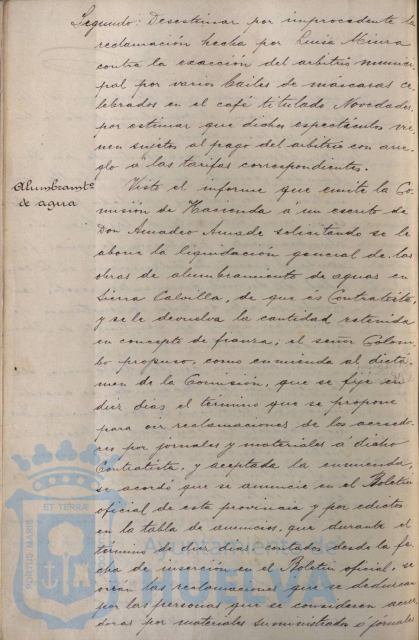 Segundo: Desestimar por improcedente la
reclamación hecha por Luisa Miura
contra la exacción del arbitrio munici-
pal por varios bailes de máscaras ce-
lebrados en el café titulado Novedades,
por estimar que dichos espectáculos vie-
nen sujetos al pago del arbitrio con arre-
glo á las tarifas correspondientes.
Alumbramto
de agua
Visto el informe que emite la Co-
misión de Hacienda á un escrito de
Don Amadeo Amade solicitando se le
abone la liquidación general de las
obras de alumbramiento de aguas en
Sierra Calvilla, de que es Contratista,
y se le devuelva la cantidad retenida
en concepto de fianza, el señor Colom-
bo propuso, como enmienda al dictá-
men de la Comisión, que se fije en
diez dias el término que se propone
para oir reclamaciones de los acreedo-
res por jornales y materiales á dicho
Contratista, y aceptada la enmienda,
se acordó que se anuncie en el Boletin
oficial de esta provincia y por edictos
en la tabla de anuncios, que durante el
término de diez dias contados desde la fe-
cha de inserción en el Boletin oficial, se
oirán las reclamaciones que se deduzcan
por las personas que se consideren acree-
doras por materiales suministrados ó jornales
PORTUS MARIS
ET TERRÆ
Ayuntamiento de
HUELVA